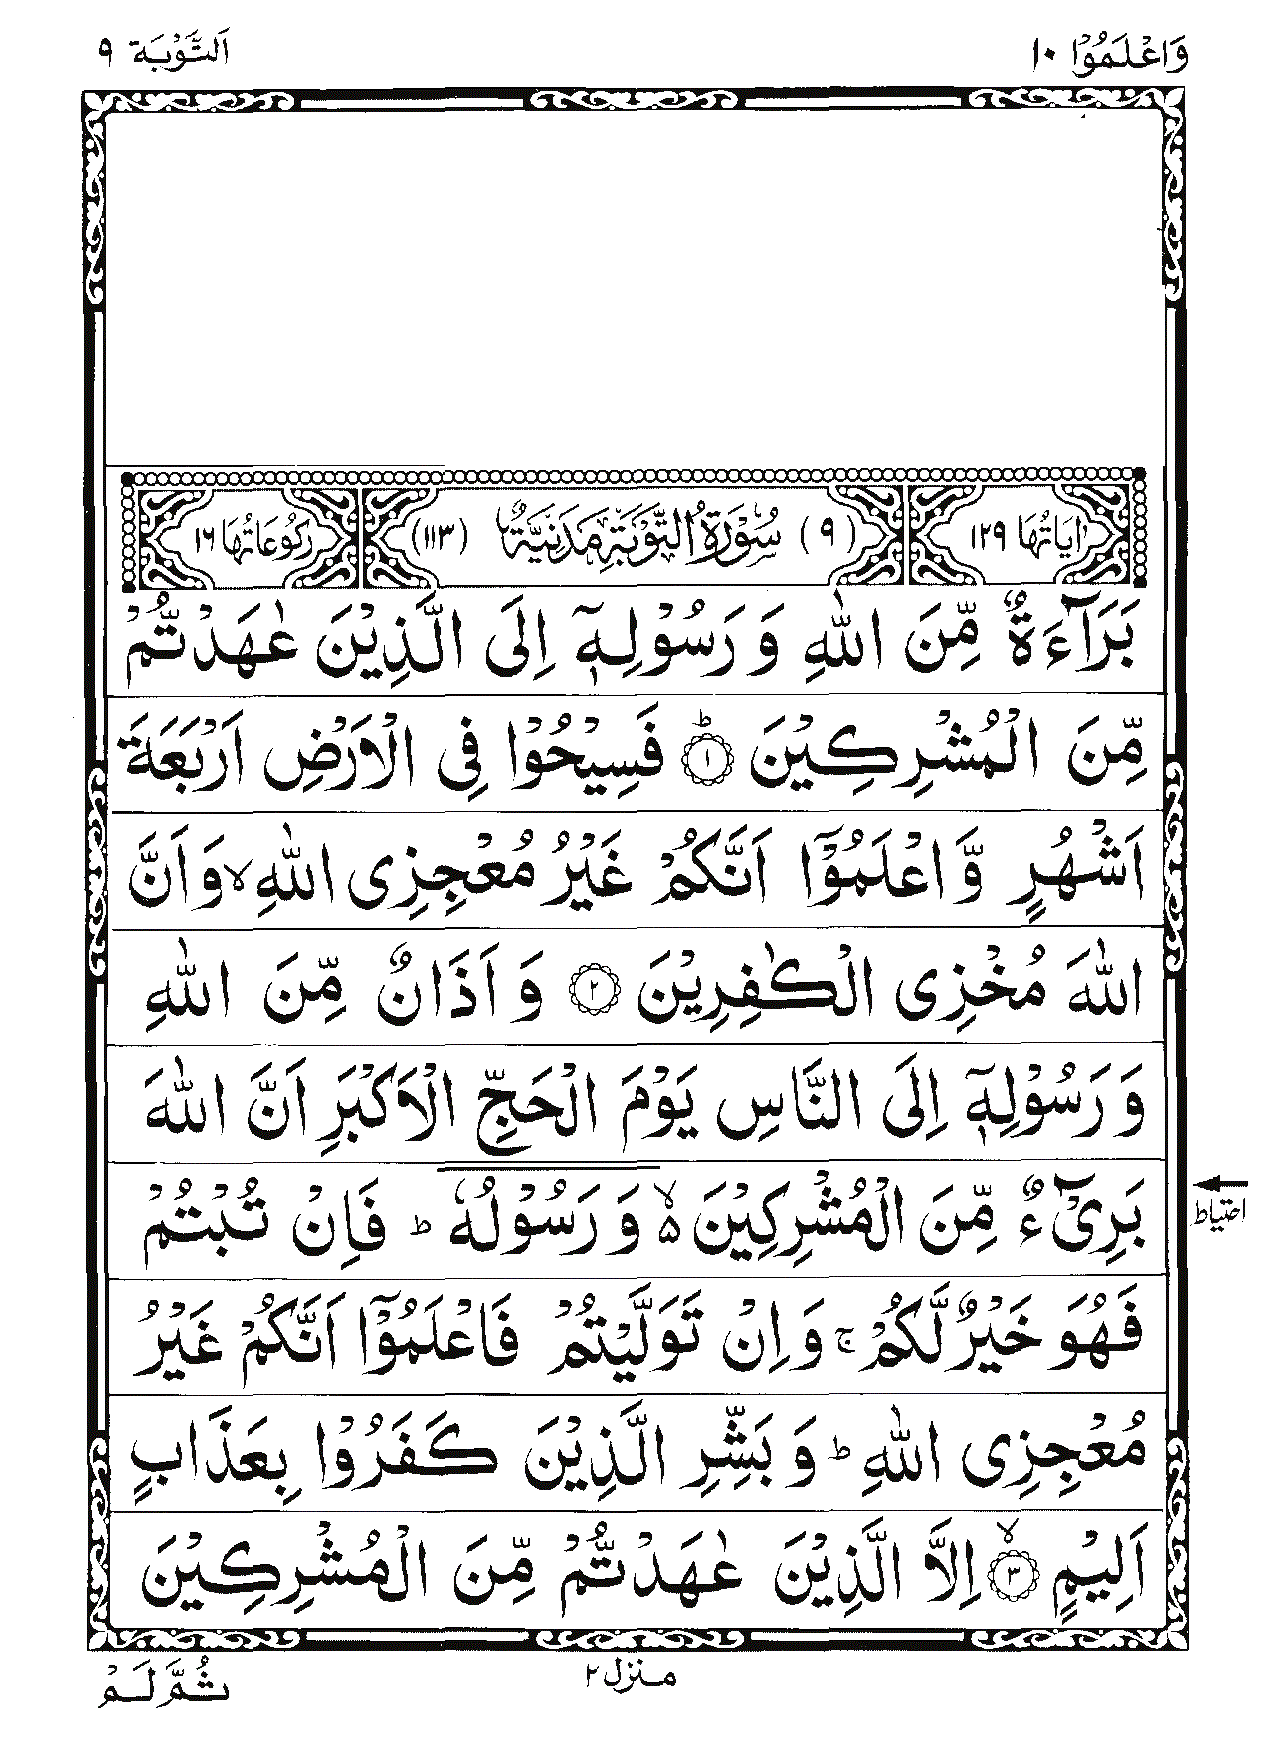 وَاعْلَمُوْۤا ١٠
اَلتَّوْبَة ٩
اٰيَاتُهَا ١٢٩
(٩) سُوْرَةُ التَّوْبَةِ مَدَنِيَّةٌ (١١٣)
رُكُوْعَاتُهَا ١٦
بَرَآءَةٌ مِّنَ اللّٰهِ وَ رَسُوْلِهٖۤ اِلَى الَّذِيْنَ عٰهَدْتُّمْ
مِّنَ الْمُشْرِكِيْنَ ؕ ١ فَسِيْحُوْا فِى الْاَرْضِ اَرْبَعَةَ
اَشْهُرٍ وَّاعْلَمُوْۤا اَنَّكُمْ غَيْرُ مُعْجِزِى اللّٰهِ ۙ وَاَنَّ
اللّٰهَ مُخْزِى الْكٰفِرِيْنَ ٢ وَ اَذَانٌ مِّنَ اللّٰهِ
وَ رَسُوْلِهٖۤ اِلَى النَّاسِ يَوْمَ الْحَجِّ الْاَكْبَرِ اَنَّ اللّٰهَ
بَرِىْٓءٌ مِّنَ الْمُشْرِكِيْنَ ۙ۵ وَ رَسُوْلُهٗ ؕ فَاِنْ تُبْتُمْ
احتياط
فَهُوَ خَيْرٌ لَّكُمْ ۚ وَاِنْ تَوَلَّيْتُمْ فَاعْلَمُوْۤا اَنَّكُمْ غَيْرُ
مُعْجِزِى اللّٰهِ ؕ وَ بَشِّرِ الَّذِيْنَ كَفَرُوْا بِعَذَابٍ
اَلِيْمٍ ۙ ٣ اِلَّا الَّذِيْنَ عٰهَدْتُّمْ مِّنَ الْمُشْرِكِيْنَ
منزل ٢
ثُمَّ لَمْ